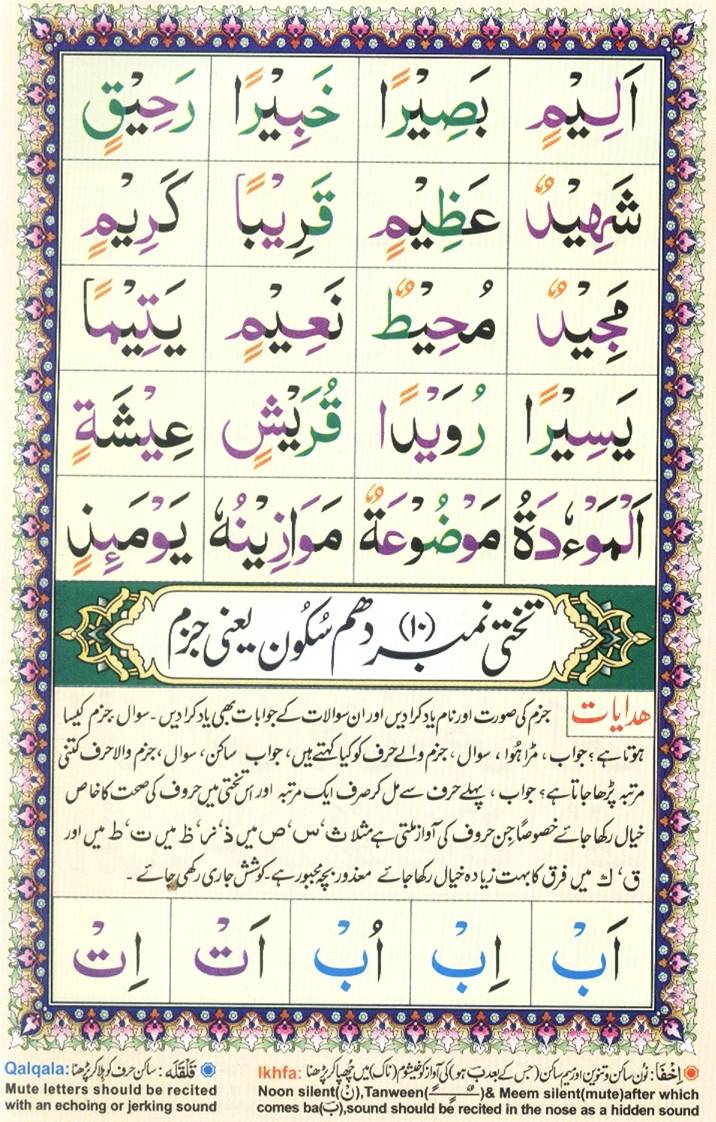 اَلِيْمٍ بَصِيْرًا خَبِيْرًا رَحِيْقٍ
شَهِيْدٌ عَظِيْمٍ قَرِيْبًا كَرِيْمٍ
مَجِيْدٌ مُحِيْطٌ نَعِيْمٍ يَتِيْمًا
يَسِيْرًا رُوَيْدًا قُرَيْشٍ عِيْشَةٍ
اَلْمَوْءٗدَةُ مَوْضُوْعَةٌ مَوَازِيْنُهٗ يَوْمَئِذٍ
تختی نمبر (۱۰) دھم سُکُون یعنی جزم
ھدایات جزم کی صورت اور نام یاد کرا دیں اور ان سوالات کے جوابات بھی یاد کرا دیں۔ سوال، جزم کیسا
ہوتا ہے؟ جواب، مڑا ہُوا، سوال، جزم والے حرف کو کیا کہتے ہیں، جواب ساکن، سوال، جزم والا حرف کتنی
مرتبہ پڑھا جاتا ہے؟ جواب، پہلے حرف سے مل کر صرف ایک مرتبہ اور اس تختی میں حروف کی صحت کا خاص
خیال رکھا جائے خصوصاً جن حروف کی آواز ملتی ہے مثلاً ث‘ س‘ ص میں ذ‘ ز‘ ظ میں ت‘ ط میں اور
ق‘ ك میں فرق کا بہت زیادہ خیال رکھا جائے معذور بچہ مجبور ہے۔ کوشش جاری رکھی جائے ۔
اَبْ اِبْ اُبْ اَتْ اِتْ
اِخْفَا: نُون ساکن و تنوین اور میم ساکن (جس کے بعد ب ہو) کی آواز کو خیشوم (ناک) میں چُھپا کر پڑھنا Ikhfa:
Noon silent(نْ),Tanween(ـًـٍـٌ)& Meem silent(mute)after which
comes ba(ب),sound should be recited in the nose as a hidden sound
قَلْقَلَه: ساکن حرف کو ہلا کر پڑھنا Qalqala:
Mute letters should be recited
with an echoing or jerking sound